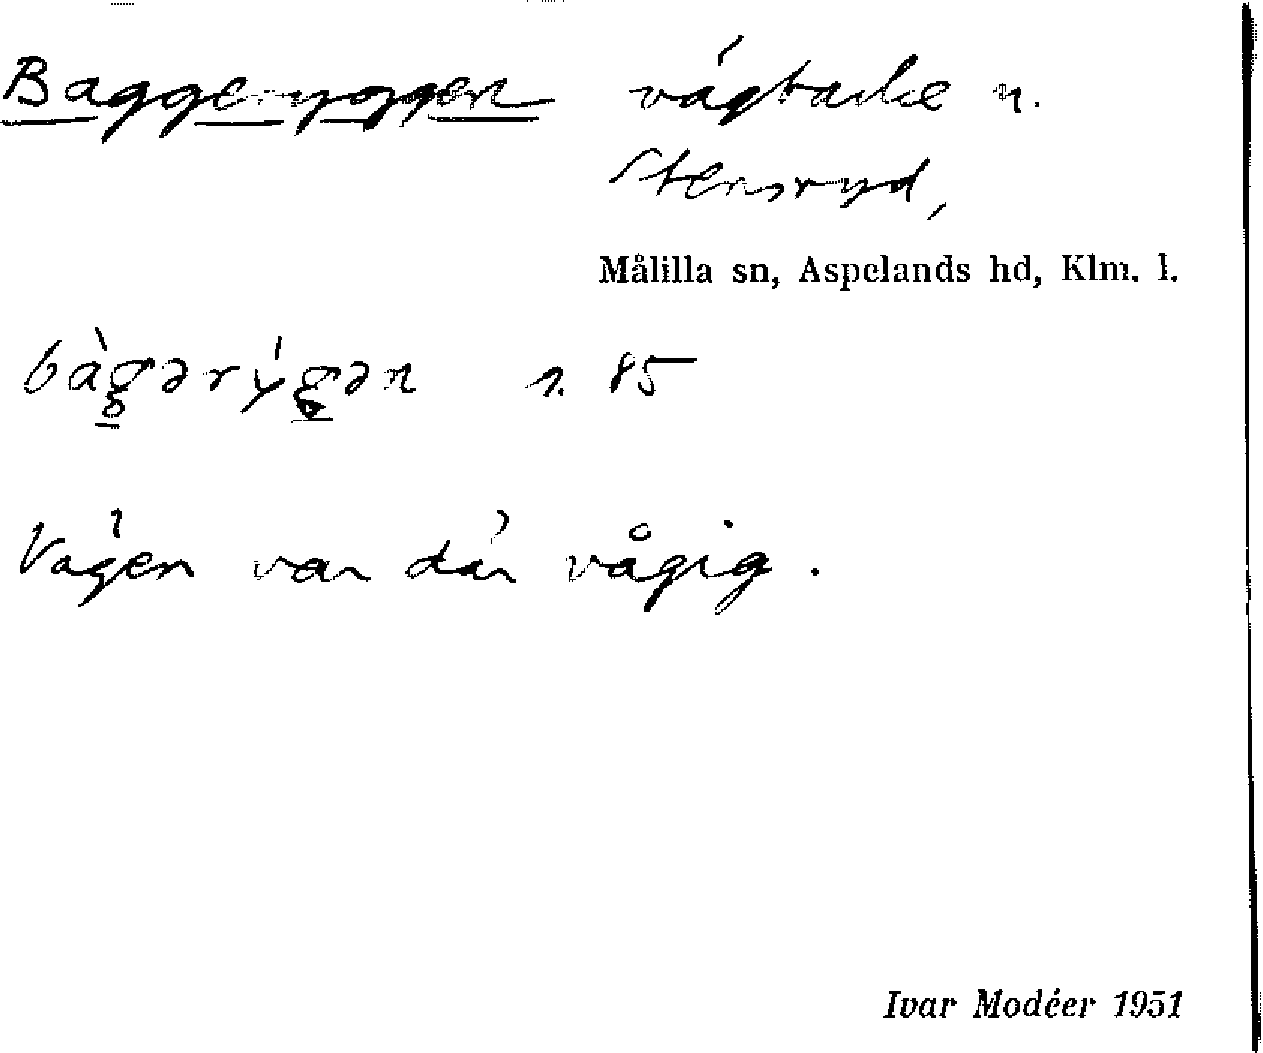 Baggeryggen vägbacke n.
Stensryd,
Målilla sn, Aspelands hd, Klm. l.
bàg̥ərýg̥ən s. 85
Vägen var där vågig.
Ivar Modéer 1951